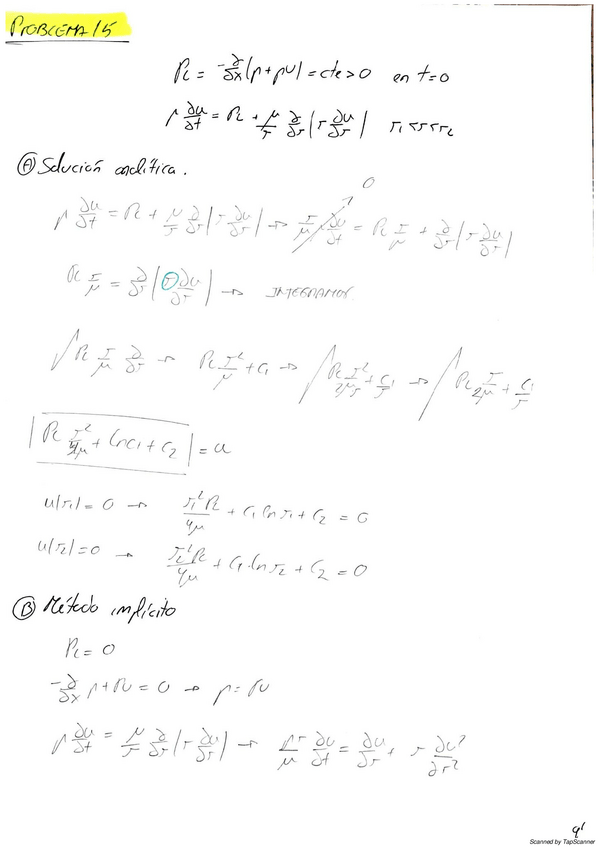 PROBLEMA 15
Pl = -∂/∂x (p + ρU) = cte > 0 en t=0
ρ ∂u/∂t = Pl + μ/r ∂/∂r (r ∂u/∂r) r₁<r<r₂
Ⓐ Solución analítica.
0
ρ ∂u/∂t = Pl + μ/r ∂/∂r (r ∂u/∂r) → r/μ ∂u/∂t = Pl r/μ + ∂/∂r (r ∂u/∂r)
Pl r/μ = ∂/∂r (r ∂u/∂r) → INTEGRAMOS
∫ Pl r/μ ∂/∂r → Pl r²/μ + c₁ → ∫ Pl r²/2μr + c₁/r → ∫ Pl r/2μ + c₁/r
| Pl r²/4μ + lnc₁ + c₂ | = u
u(r₁) = 0 → r₁² Pl/4μ + c₁ ln r₁ + c₂ = 0
u(r₂) = 0 → r₂² Pl/4μ + c₁·ln r₂ + c₂ = 0
Ⓑ Método implícito
Pl = 0
-∂/∂x p + ρU = 0 → p = ρU
ρ ∂u/∂t = μ/r ∂/∂r (r ∂u/∂r) → ρr/μ ∂u/∂t = ∂u/∂r + r ∂u²/∂r²
Scanned by TapScanner